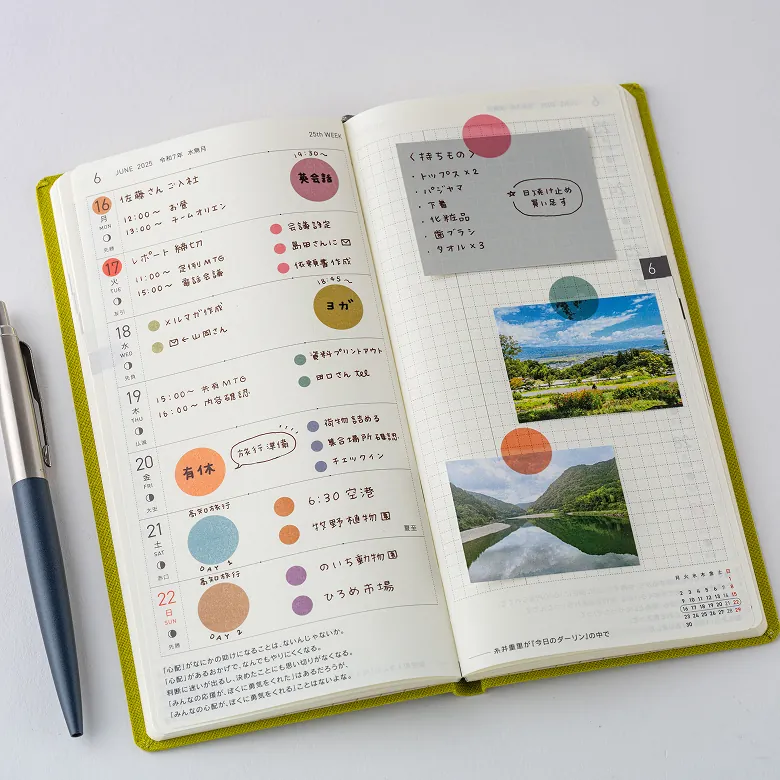 6 JUNE 2025 令和7年 水無月
25th WEEK
16 月 MON 先勝
佐藤さんご入社
12:00〜 お昼
13:00〜 チームオリエン
19:30〜
英会話
17 火 TUE 友引
レポート締切
11:00〜 定例MTG
15:00〜 電話会議
会議設定
島田さんに
依頼書作成
18 水 WED 先負
メルマガ作成
←山岡さん
18:45〜
ヨガ
19 木 THU 仏滅
15:00〜 共有MTG
16:00〜 内容確認
資料プリントアウト
田口さんtel
20 金 FRI 大安
有休
旅行準備
荷物詰める
集合場所確認
チェックイン
21 土 SAT 赤口
高知旅行
DAY 1
6:30 空港
牧野植物園
夏至
22 日 SUN 先勝
高知旅行
DAY 2
のいち動物園
ひろめ市場
「心配」がなにかの助けになることは、ないんじゃないか。
「心配」があるおかげで、なんでもやりにくくなる。
判断に迷いが出るし、決めたことにも思い切りがなくなる。
「みんなの応援が、ぼくに勇気をくれた」はあるだろうが、
「みんなの心配が、ぼくに勇気をくれる」ことはないよな。
〈持ちもの〉
・トップス×2
・パジャマ
・下着
・化粧品
・歯ブラシ
・タオル×3
☆ 日焼け止め
買い足す
6
月 火 水 木 金 土 日
1
2 3 4 5 6 7 8
9 10 11 12 13 14 15
16 17 18 19 20 21 22
23 24 25 26 27 28 29
30
糸井重里が『今日のダーリン』の中で